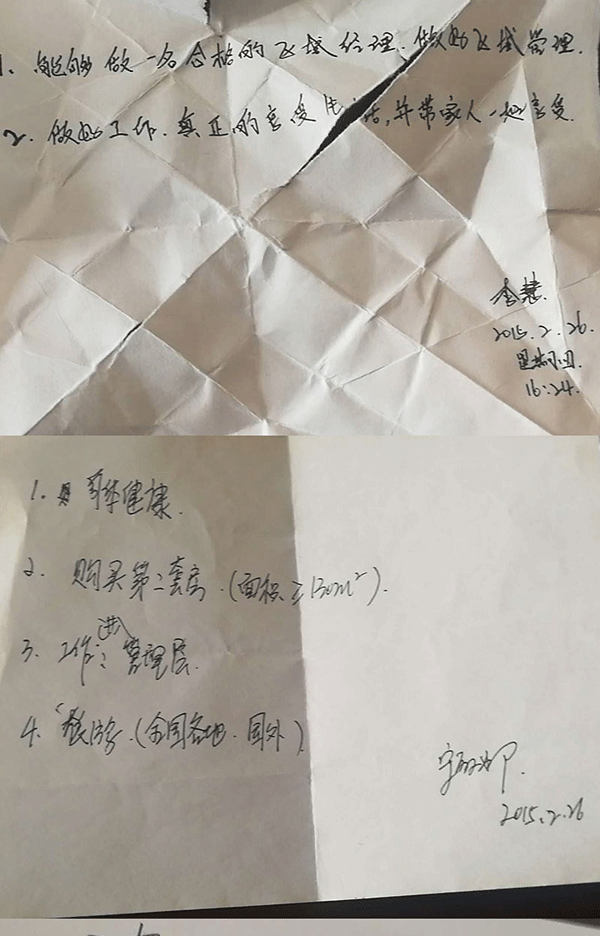 1. 能够做一名合格的区域经理、做好区域管理.
2. 做好工作.真正的享受生活,并带家人一起享受.
2015.2.26.
16:24.
1. 身体健康.
2. 购买第二套房.(面积≥130m²).
3. 工作:进管理层.
4. 旅游.(全国各地.国外)
2015.2.26